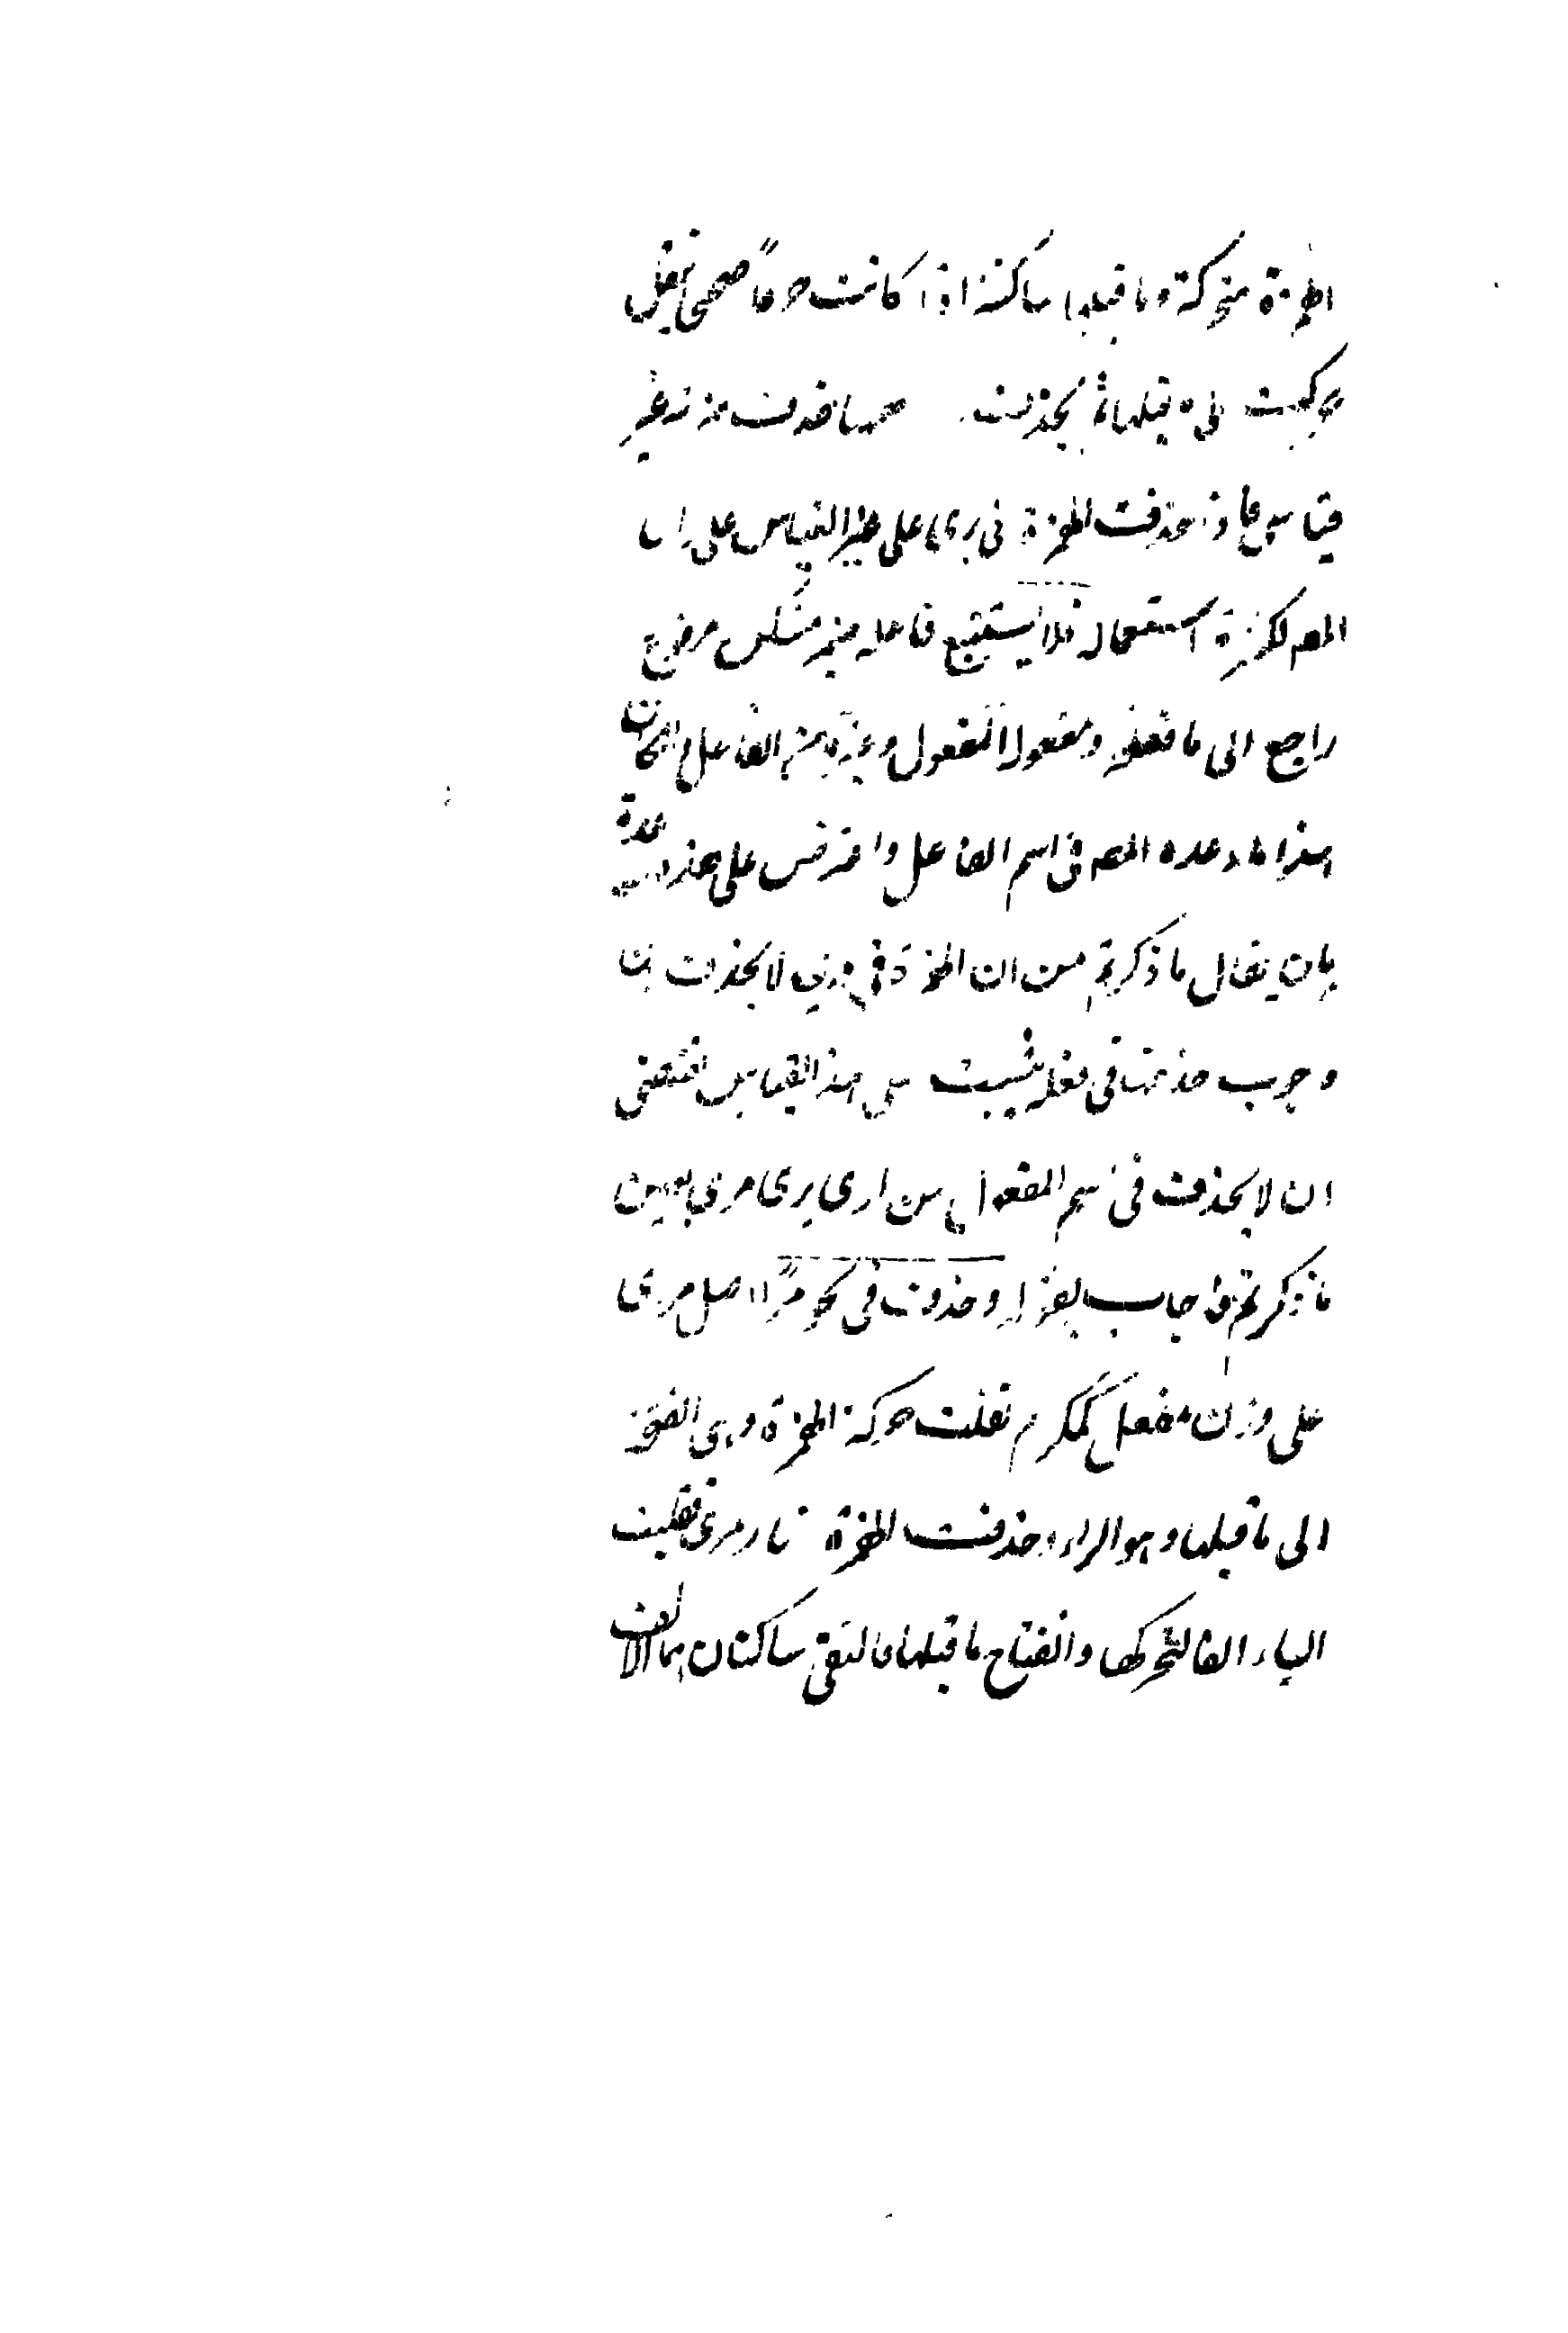 الهمزة متحركة وما قبلها ساكنة اذا كانت حرفاً صحيحاً نقل
حركت الى ما قبلها ثم يحذف
قياس حذفت الهمزة فى يرى على غير القياس على راى
المص لكثرة استعماله فلا يستتبع فاعله ضمير مرفوع
راجع الى ما فعله ومفعول المفعول وغيره الفاعل
هذا ما وعده المص فى اسم الفاعل واعترض على هذه
بان يقال ما ذكرتم من ان الهمزة فى مرئى لا يحذف بان
وجوب حذفها فى فعله على هذا القياس اقتضى
ان لا يحذف فى اسم المفعول من ارى يرى مرى بعين
ما ذكرتم فاجاب بقوله وحذفت فى نحو مرًى اصل مرى
على وزن مفعل كمكرم نقلت حركة الهمزة وهى الفتحة
الى ما قبلها وهو الراء وحذفت الهمزة صار مرى فقلبت
الياء الفا لتحركها وانفتاح ما قبلها فالتقى ساكنان هما الالف